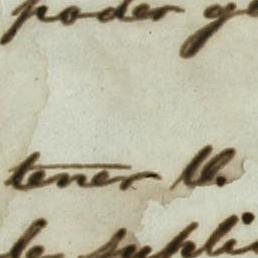 poder ge
tener U.
le supli